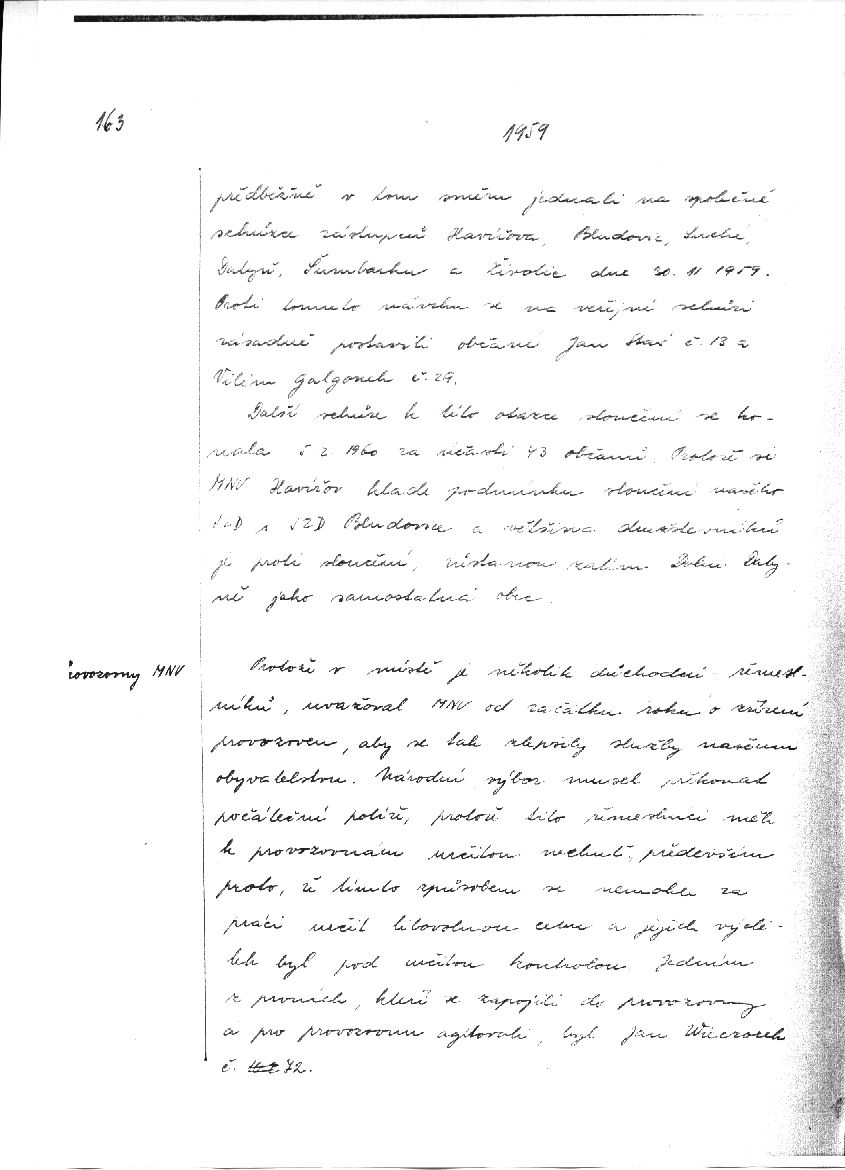 163
1959
předběžně v tom směru jednali na společné
schůzce zástupců Havířova, Bludovic, Suché,
Datyň, Šumbarku a Životic dne 30. 11 1959.
Proti tomuto návrhu se na veřejné schůzi
zásadně postavili občané Jan Stař č. 13 a
Vilém Galgonek č. 29.
Další schůze k této otázce sloučení se ko-
nala 5 2. 1960 za účasti 43 občanů. Protože si
MNV Havířov klade podmínku sloučení našeho
JZD s JZD Bludovice a většina družstevníků
je proti sloučení, zůstanou zatím Dolní Daty-
ně jako samostatná obec.
rovozovny MNV
Protože v místě je několik důchodců - řemesl-
níků, uvažoval MNV od začátku roku o zřízení
provozoven, aby se tak zlepšily služby našemu
obyvatelstvu. Národní výbor musel překonat
počáteční potíže, protože tito řemeslníci měli
k provozovnám určitou nechuť, především
proto, že tímto způsobem se nemohla za
práci určit libovolnou cenu a jejich výdě-
lek byl pod určitou kontrolou. Jedním
z prvních, kteří se zapojili do provozovny
a pro provozovnu agitovali, byl Jan Wieczorek
č. 72.